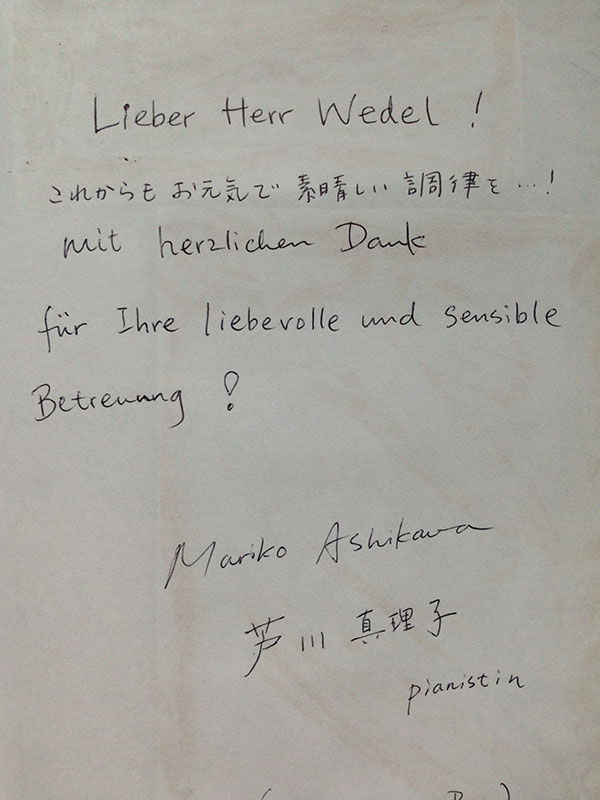 Lieber Herr Wedel !
これからも お元気で 素晴しい 調律を…!
mit herzlichen Dank
für Ihre liebevolle und sensible
Betreuung !
Mariko Ashikawa
芦川 真理子
pianistin